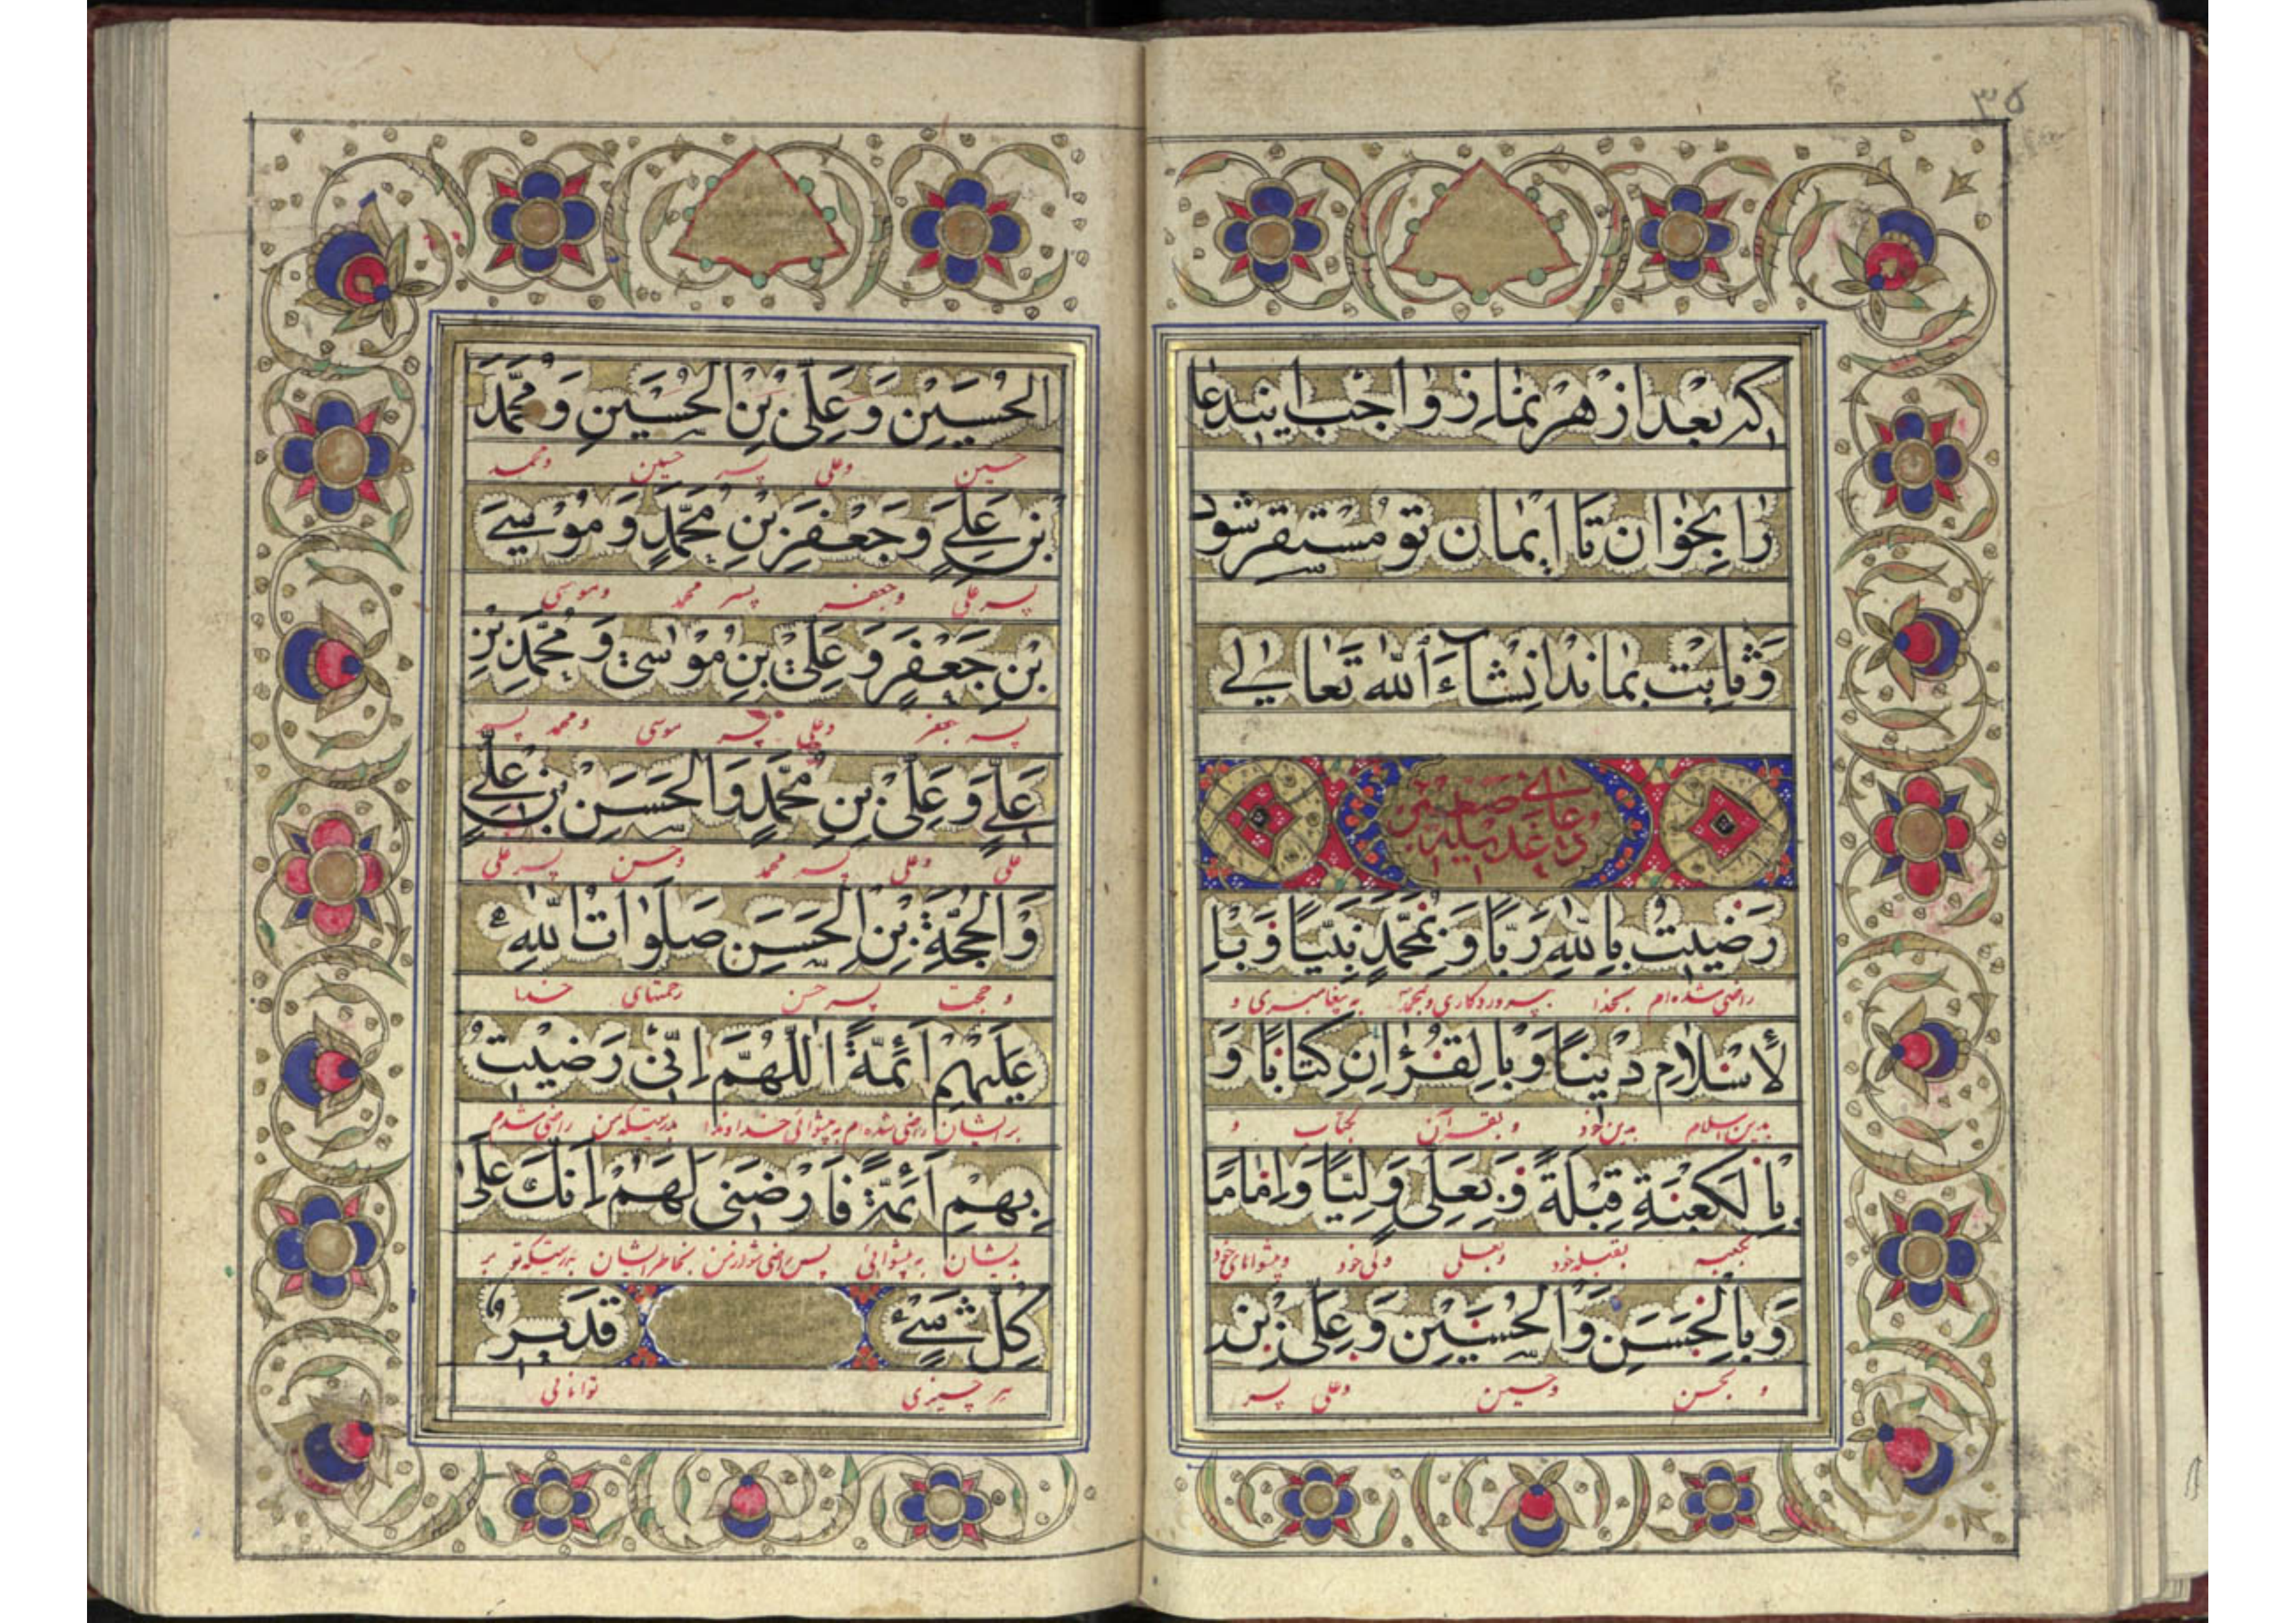 ۳۵
که بعد از هر نماز واجب این دعا
را بخوان تا ایمان تو مستقر شود
و ثابت بماند انشاءَ اللّٰه تعالی
دعای صغیر
عدیله
رَضیتُ بِاللّٰهِ رَبّاً وَ بِمُحَمَّدٍ نَبیّاً وَ بِا
راضی شده‌ام بخدا بپروردکاری و بمحمد به پیغامبری و
لأسْلامِ دیناً وَ بِالقُرْاٰنِ کِتٰاباً وَ
بدین اسلام بدین خود و بقرآن بکتاب و
بِالکَعْبَةِ قِبْلَةً وَ بِعَلِیٍّ وَلِیّاً وَ اِمٰاماً
بکعبه بقبله خود و بعلی ولی خود و پیشوای خود
وَ بِالْحَسَنِ وَ الْحُسَیْنِ وَ عَلِیِّ بْنِ
و بحسن و حسین و علی پسر
الحُسَیْنِ وَ عَلِیِّ بْنِ الحُسَیْنِ وَ مُحَمَّدَ
حسین و علی پسر حسین و محمد
بْنِ عَلِیٍ وَ جَعْفَرِ بْنِ مُحَمَّدٍ وَ مُوْسیَ
پسر علی و جعفر پسر محمد و موسی
بْنِ جَعْفَرٍ وَ عَلِیِّ بْنِ مُوْسٰی وَ مُحَمَّدِ بْنِ
پسر جعفر و علی پسر موسی و محمد پسر
عَلِیٍّ وَ عَلِیِّ بْنِ مُحَمَّدٍ وَ الحَسَنِ بْنِ عَلِیٍّ
علی و علی پسر محمد و حسن پسر علی
وَ الحُجَّةِ بْنِ الحَسَنِ صَلَوٰاتُ اللّٰهِ
و حجت پسر حسن رحمتهای خدا
عَلَیْهِمْ اَئِمَّةً اَللّٰهُمَّ اِنّی رَضیْتُ
بر ایشان راضی شده‌ام به پیشوائی خداوندا بدرستیکه من راضی شدم
بِهِمْ اَئِمَّةً فَارْضَنی لَهُمْ اِنَّکَ عَلٰی
بدیشان به پیشوائی پس راضی شو از من بخاطر ایشان بدرستیکه تو بر
کُلِّ شَیْءٍ قَدیرٌ
هر چیزی توانائی